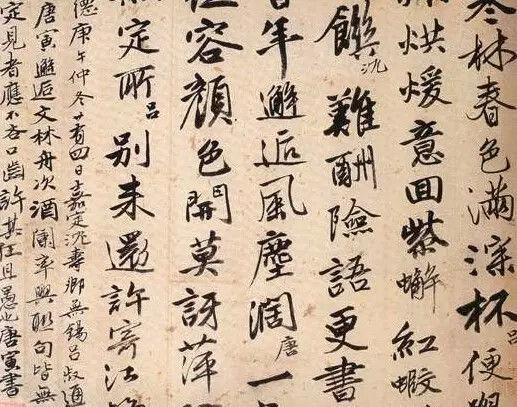 冬林春色滿深杯呂便
烘煖意回紫蠏紅蝦
饌沈難酬險語更書
年邂逅風塵濶唐一
容顏色開莫訝萍
定所呂別來還許寄江
德庚午仲冬廿有四日嘉定沈壽卿無錫呂叔通
唐寅邂逅文林舟次酒闌率興聯句皆無
定見者應不吝口齒許其狂且愚也唐寅書